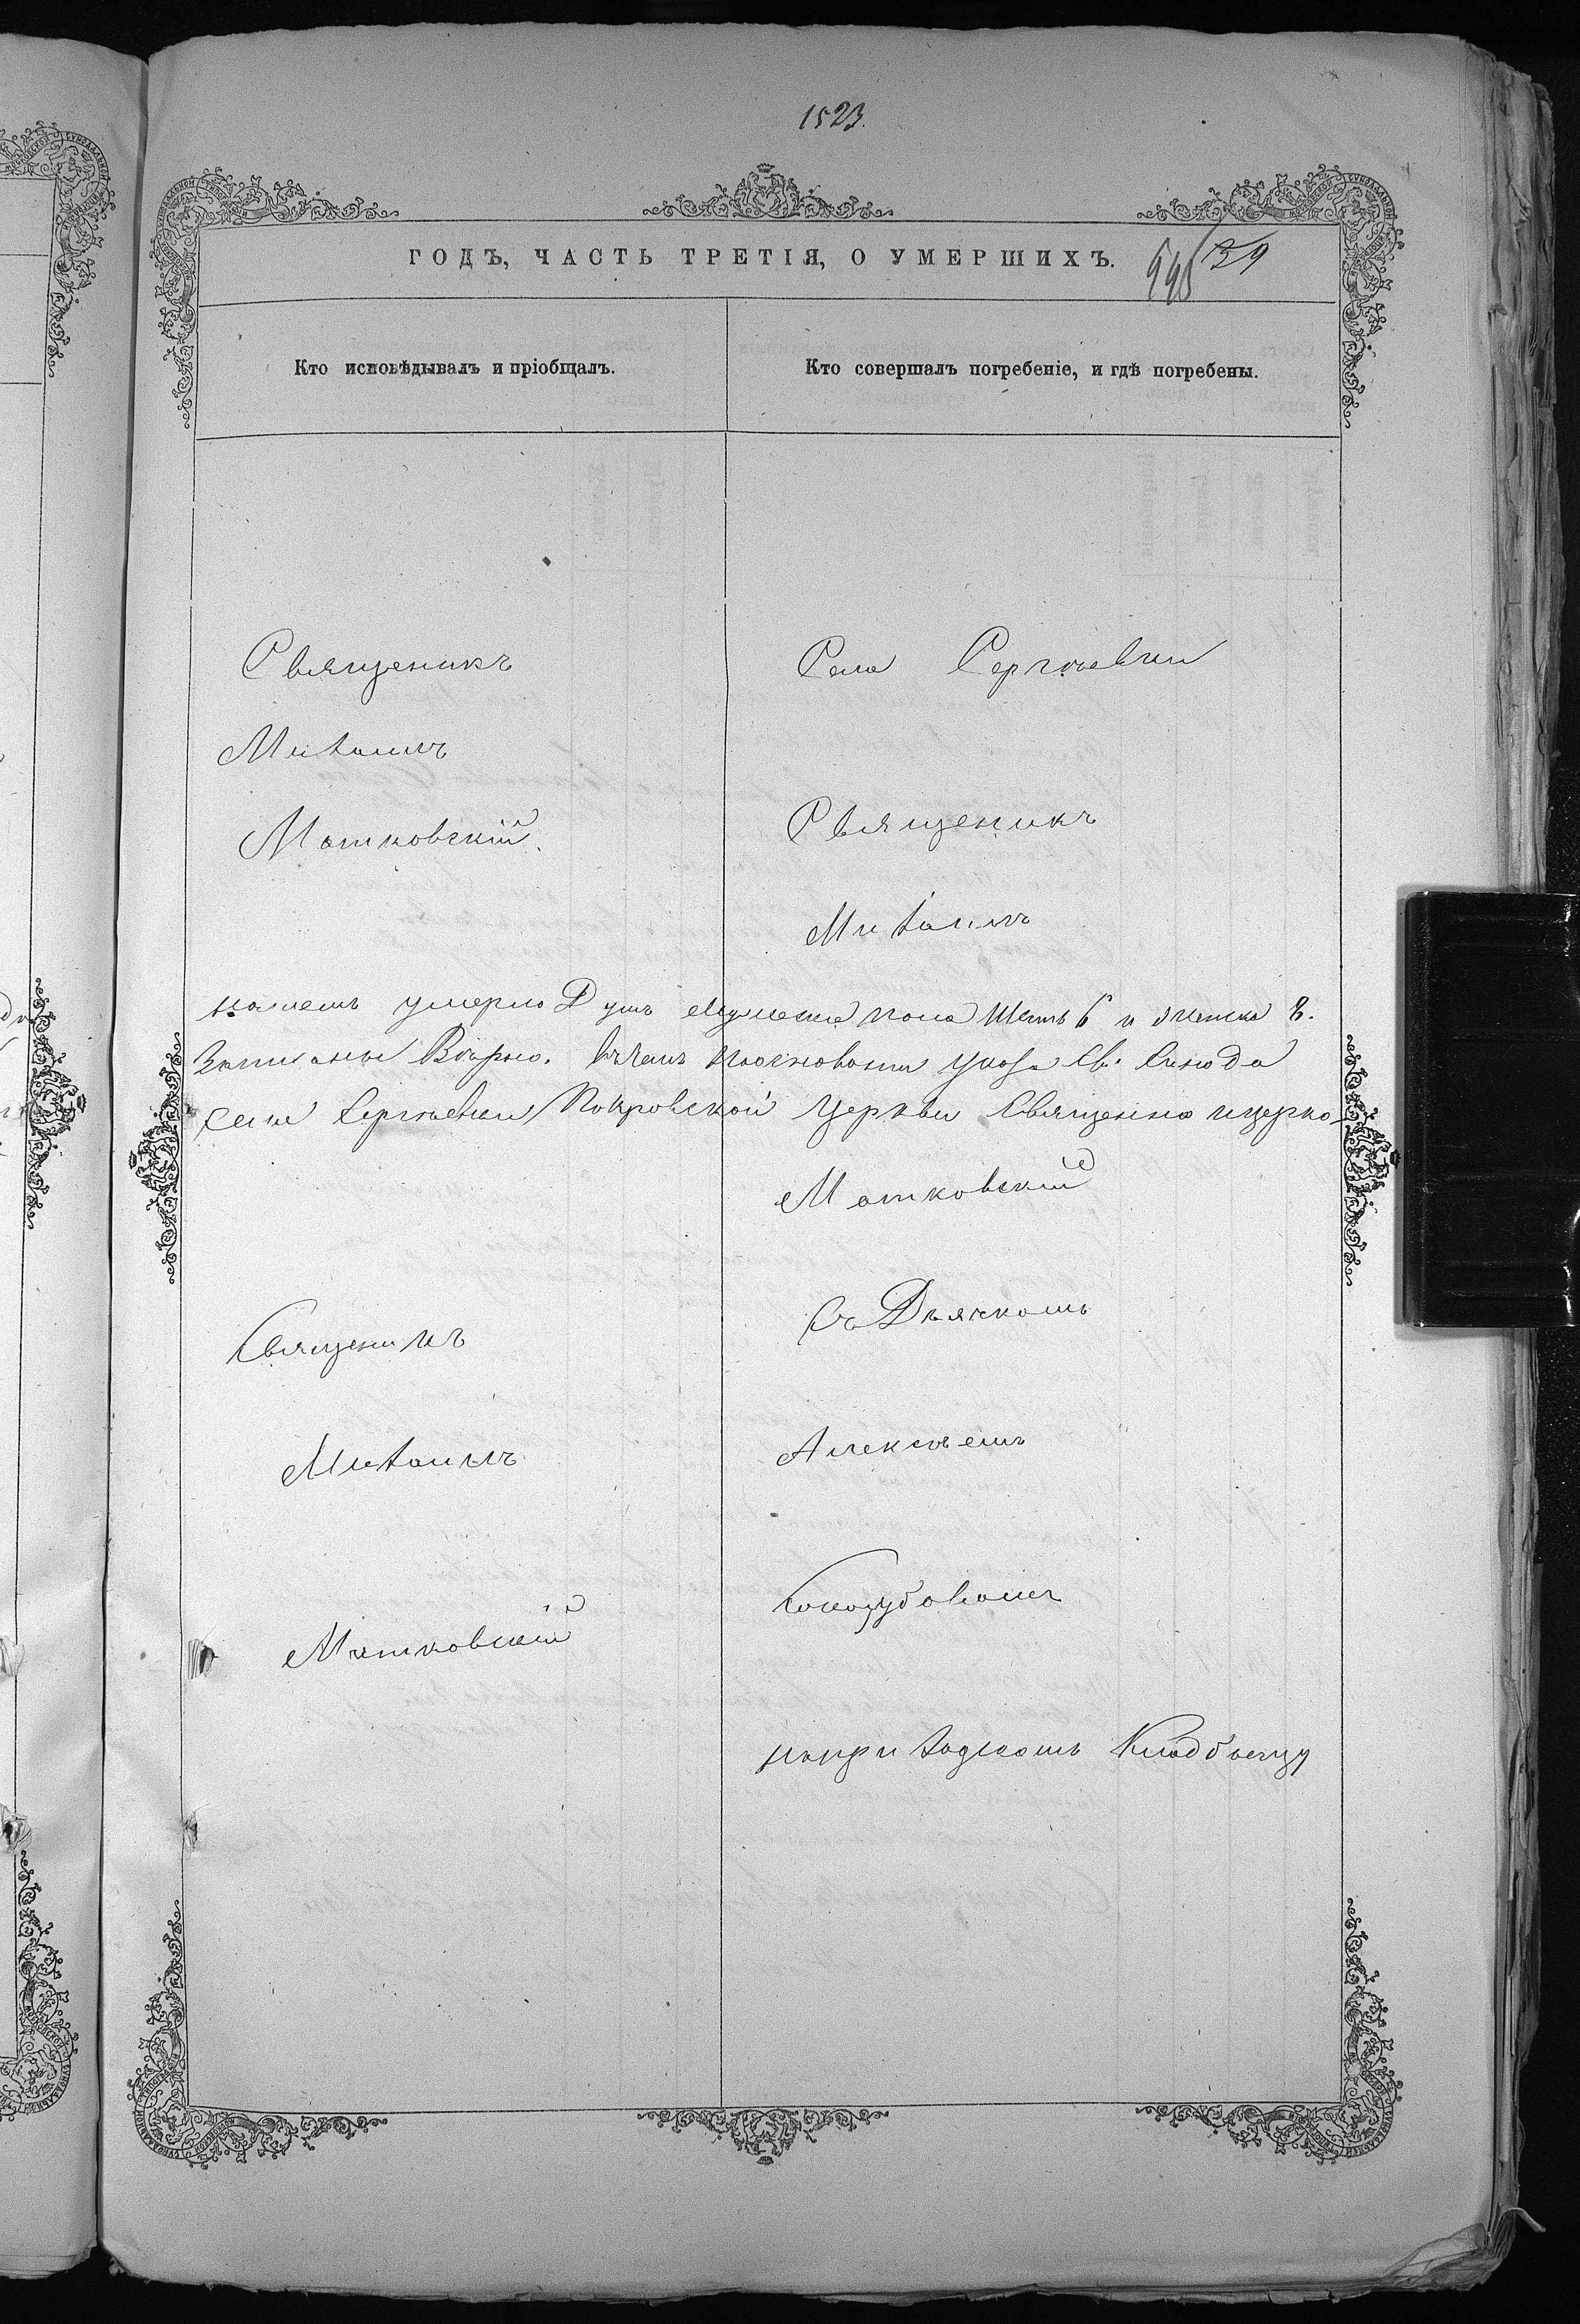 1523.
ГОДЪ, ЧАСТЬ ТРЕТІЯ, О УМЕРШИХЪ.
139
Кто исповѣдывалъ и пріобщалъ.
Кто совершалъ погребеніе, и гдѣ погребены.
Священикъ
Михаилъ
Матковскій.
Села Сергѣевки
Священикъ
Михаилъ
умерло Душъ Мужеска пола Шесть 6 и женска 8.
Записаны Вѣрно. Въ чемъ на основаніи Указа Св. Синода
села Сергѣевки Покровской Церкви Священно и церко-
Матковскій
Съ Дьячкомъ
Алексѣемъ
Священикъ
Михаилъ
Матковскій
на приходскомъ Кладбищу